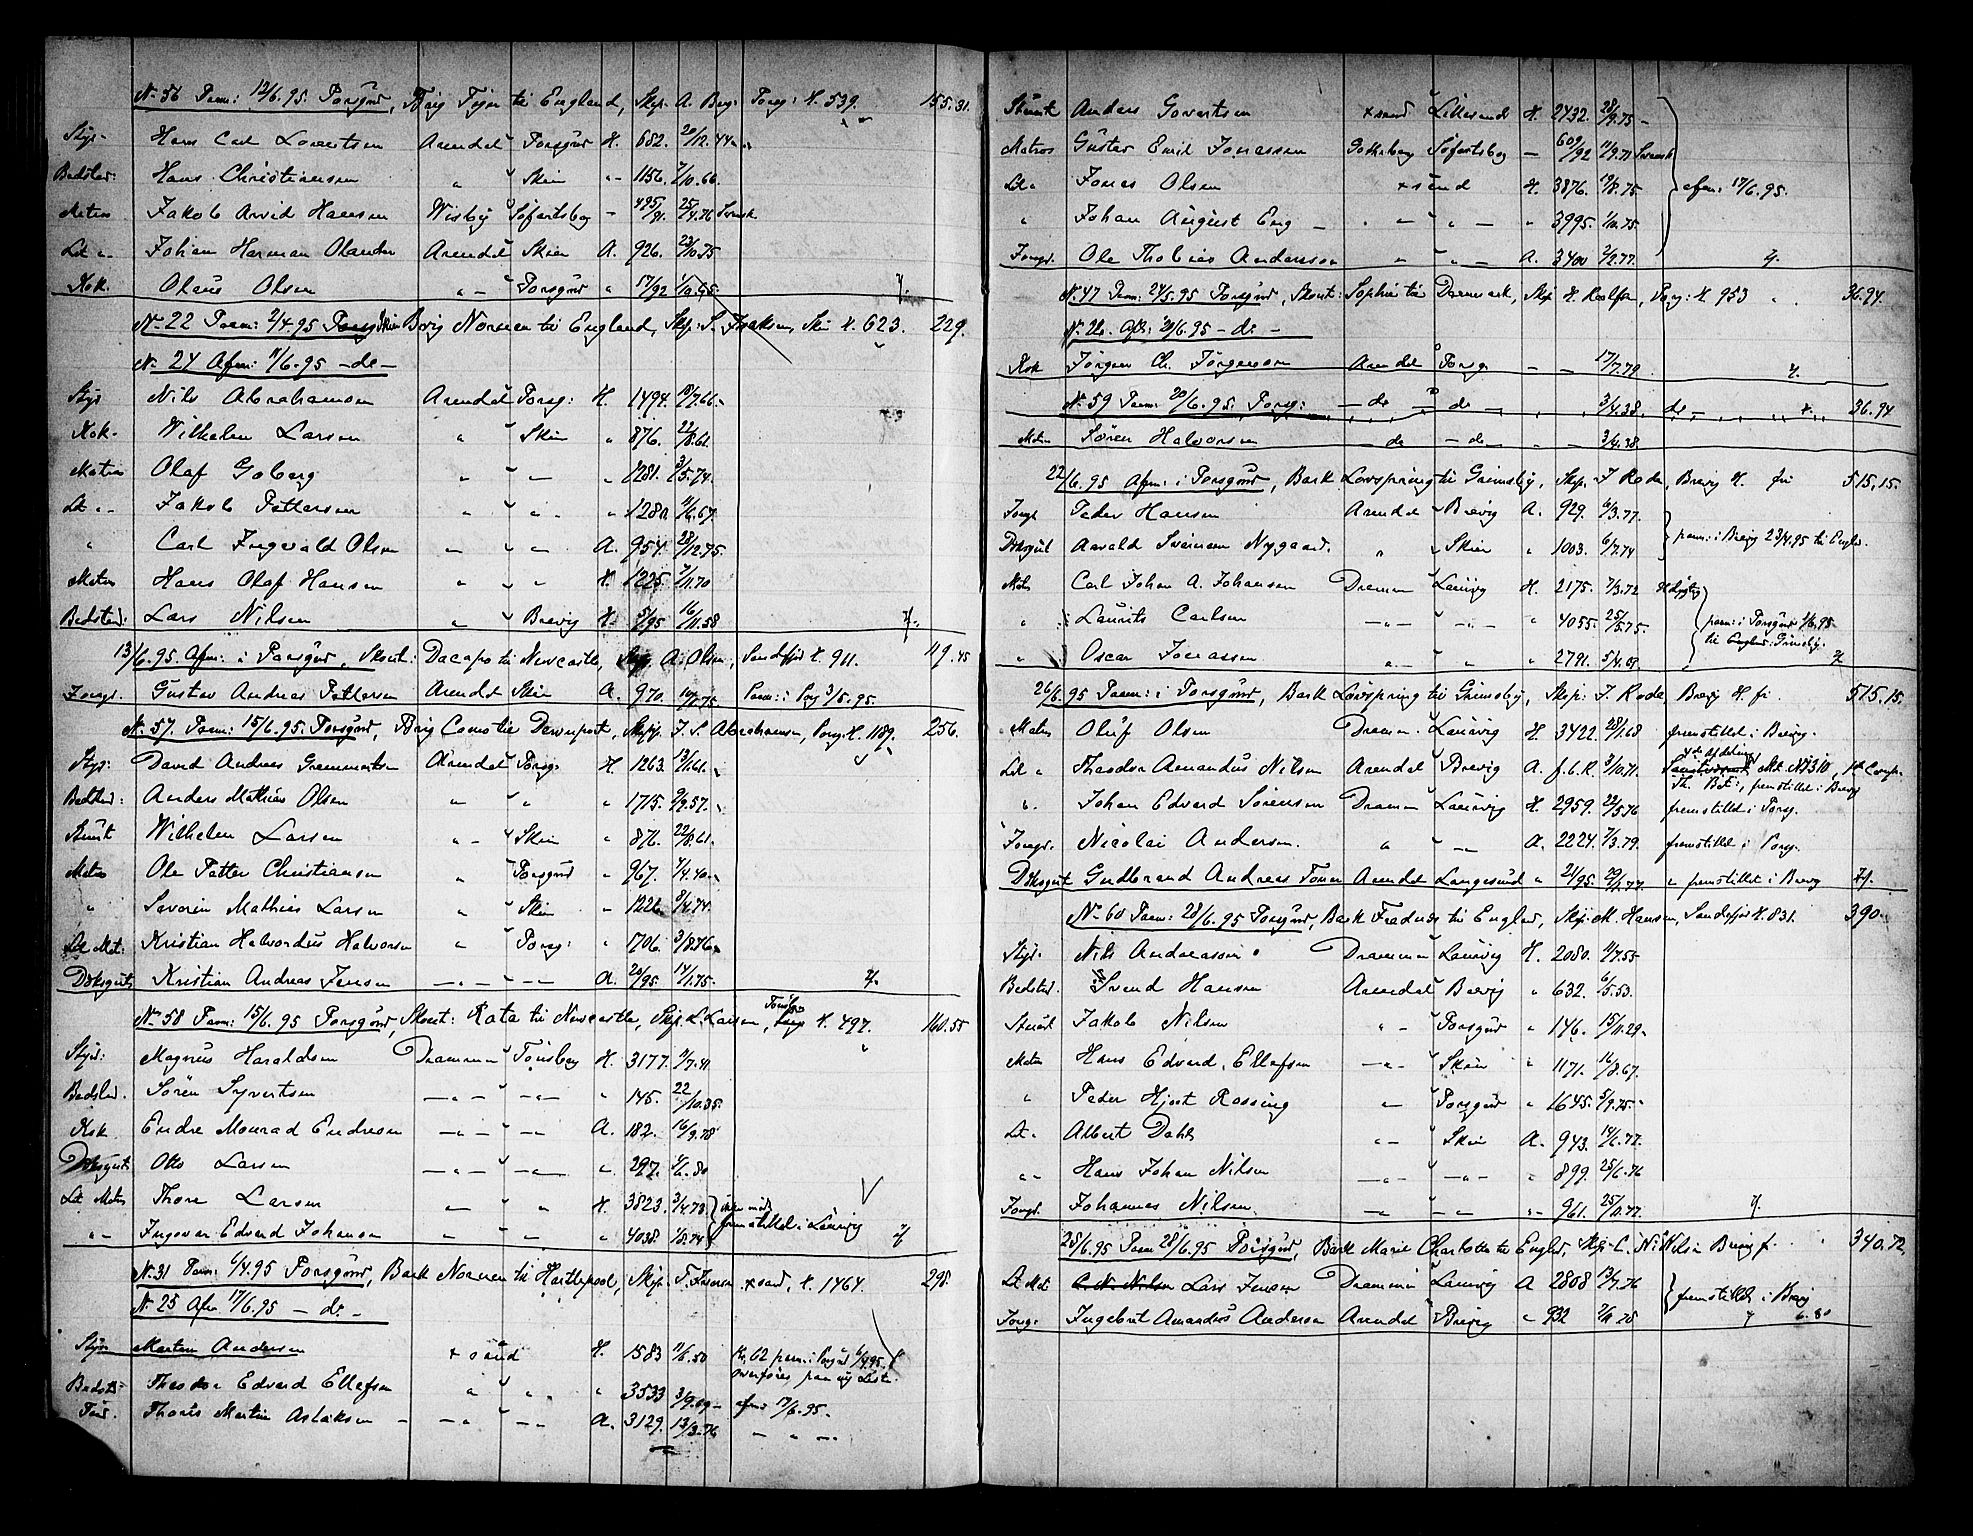 No 56 Paam: 12/6.95. Porsgrund, Brig Fejer til England, Skip. A. Berg. Porsg: H. 539. 155.31.
Styr. Hans Carl Lovertsen Arendal Porsgrund H. 682. 20/12.44
Bedstad: Hans Christiansen " Skien " 1156. 7/10.66.
Matros Jakob Arvid Hansen Wisby Søfartsbog - 495/91. 25/4.76 Svensk
Let " Johan Herman Olander Arendal Skien A. 926. 23/10.75
Kok. Olaus Olsen " Porsgrund " 17/92
No 22 Paam: 2/4.95 Skien Brig Nornen til England, Skip: S. Isaksen, Skien H. 623. 229.
No. 24 Afm: 11/6.95 - do -
Styr Nils Abrahamsen Arendal Porsg: H. 1494. 18/7.66.
Kok. Wilhelm Larsen " Skien " 876. 22/8.61.
Matros Olaf Goberg " " " 1281. 3/5.74.
Let " Jakob Pettersen " " " 1280. 11/6.67.
" Carl Ingvald Olsen " " A. 954. 28/12.75.
Matros Hans Olaf Hansen " " H. 1225. 7/11.70
Bedstad: Lars Nilsen " Brevig H. 5/95 16/11.58
13/6.95. Afm: i Porsgrund, Skont: Dacapo til Newcastle, Skip. A. Olsen, Sandefjord H. 911. 119.45
Jungd. Gustav Andreas Pettersen Arendal Skien A. 970. Paam: i Porsg 3/5.95.
No. 57. Paam: 15/6.95. Porsgrund, Brig Como til Davenport, Skip. J. S. Abrahamsen, Porsg. H. 1189. 256.
Styr: David Andreas Grammertsen Arendal Porsg. H. 1263. 13/1.61.
Bedstad: Anders Mathias Olsen " " " 1715. 9/9.57.
Stuert Wilhelm Larsen " Skien " 876. 22/8.61.
Matros Ole Petter Christiansen " Porsgrund " 967. 7/4.40.
" Severin Mathias Larsen " Skien " 1226. 8/4.74.
Let Mat: Kristian Halvordus Halvorsen " Porsg: " 1706. 3/8.76.
Dæksgut Kristian Andreas Jensen " " A. 20/95. 14/1.75.
No 58 Paam: 15/6.95 Porsgrund, Skont: Rota til Newcastle, Skip. L. Larsen, Tønsbg H. 497. 160.55
Styr: Magnus Haraldsen Drammen Tønsberg H. 3177. 9/7.41
Bedstad. Søren Syvertsen " " " 145. 22/10.35.
Kok Endre Monrad Endresen " " A. 182. 16/9.78
Dæksgut Otto Larsen " " " 297. 1/6.80
Let Matr Thore Larsen " " H. 3823. 3/4.78.
" Ingvar Edvard Johansen " " " 4038. 1/8.74 fremstillet i Laurvig
No. 31 Paam: 6/4.95 Porsgrund, Bark Nornen til Hartlepool, Skip. T. Iversen xsand, H. 1464. 295.
No. 25 Afm 17/6.95 - do. -
Styr Morten Andersen xsand H. 1583 11/6.50 No. 62 paam: i Porsgrund 6/7.95. overføres paa ny Liste.
Bedsts Theodor Edvard Ellefsen " " " 3533 3/9.69 afm: 17/6.95.
Thoris Martin Aslaksen " " A. 3129. 13/3.76 " " "
Stuert Anders Govertsen xsand Lillesand H. 2732. 28/9.75
Matros Gustav Emil Jonassen Gothaborg Søfartsbog - 609/92 11/9.71 Svensk
Let " Jonas Olsen xsand H. 3876. 19/8.75. afm: 17/6.95.
" Johan August Eng " " " 3995. 1/10.75.
Jungd. Ole Thobias Andersen " " A. 3400 2/2.77.
No. 47 Paam: 24/5.95 Porsgrund, Skont: Sophie til Danmark, Skip H. Roalfsen, Porsg: H. 953 36.94.
No. 26. Afm: 20/6.95 - do. -
Kok Jørgen Chr. Jørgensen Arendal Porsg. - - 17/7.79.
No. 59 Paam: 20/6.95. Porsg: - do do - 3/4.38. do - 36.94
Matr Søren Halvorsen - do - do - - - 3/4.38.
22/6.95 Afm: i Porsgrund, Bark Løvspring til Grimsby, Skip. J. Rode, Brevig H. fri 515.15.
Jungd Peder Hansen Arendal Brevig A. 929. 6/3.77.
Dæksgut Aavald Nygaard. " Skien " 1003. 6/7.74 paam: i Brevig 23/4.95 til Engld.
Matr Carl Johan A. Johansen Drammen Laurvig H. 2175. 7/3.72
" Laurits Carlsen " " " 4055. 25/5.75. paam: i Porsgrund 1/6.95.
" Oscar Jonassen " " " 2791. 5/4.69. til Engld. Grimsby.
26/6.95 Paam: i Porsgrund, Bark Løvspring til Grimsby, Skip: J. Rode, Brevig H. fri 515.15.
Matros Oluf Olsen Drammen Laurvig H. 3422. 28/1.68 fremstillet i Brevig.
Let " Theodor Amandus Nilsen Arendal Brevig A. f.C.R. 3/10.71. 4de afdeling Mt. No 310, 1st Comp. Th. Bat:, fremstillet i Brevig
" Johan Edvard Sørensen Drammen Laurvig H. 2959. 22/5.76 fremstillet i Porsg.
Jungd. Nicolai Andersen. " " A. 2224. 7/3.79. fremstillet i Porsg.
Dæksgut Gudbrand Andreas Arendal Langesund " 21/95. 29/1.77. " fremstillet i Brevig
No. 60 Paam: 28/6.95 Porsgrund, Bark til England, Skip: M. Hansen, Sandefjord H. 831. 390.
Styr. Nils Andreassen Drammen Laurvig H. 2080. 11/7.55
Bedstad. Svend Hansen Arendal Brevig " 632. 6/5.53.
Stuert Jakob Nilsen " Porsgrund " 146. 15/11.29.
Matr Hans Edvard Ellefsen " Skien " 1171. 16/8.67.
" Peder Hjort Rossing " Porsgrund " 1645. 5/9.75.
Let " Albert Dahl " Skien A. 943. 14/6.77.
" Hans Johan Nilsen " " " 899. 25/6.76
Jungd. Johannes Nilsen. " " " 961. 25/11.77.
25/6.95 Paam 28/6.95 Porsgrund, Bark Marie Charlotte til Engld, Skip. C. N. Nilsen Brevig f. 340.72.
Let Mat C. N. Nilsen Lars Jensen Drammen Laurvig A 2808 13/7.76
Jungd. Ingebret Amandus Andersen Arendal Brevig " 932 fremstillet i Brevig 6.80